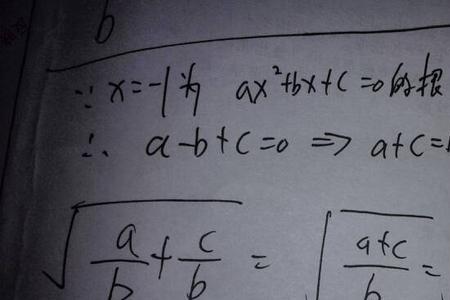 b
∵ x=-1为 ax²+bx+c=0的根
∴ a-b+c=0 ⇒ a+c=
√(a/b + c/b) = √((a+c)/b) =